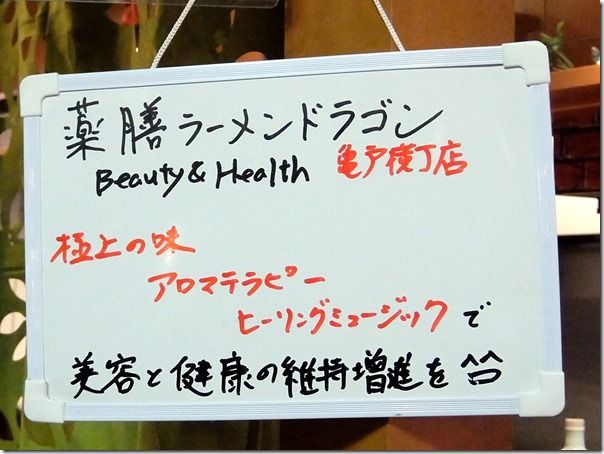 薬膳ラーメンドラゴン
Beauty & Health 亀戸横丁店
極上の味
アロマテラピー
ヒーリングミュージックで
美容と健康の維持増進を ^^